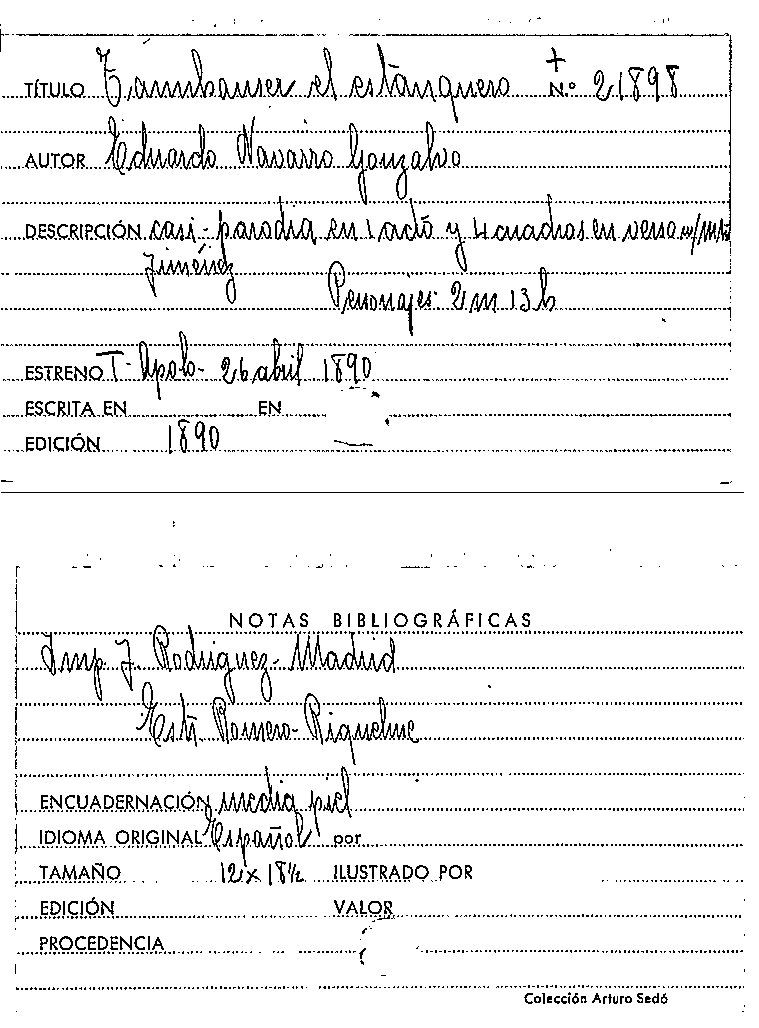 TÍTULO Tannhauser el estanquero + N.º 21898
AUTOR Eduardo Navarro Gonzalvo
DESCRIPCIÓN casi-parodia en 1 acto y 4 cuadros en verso m/ mtro
Jiménez
Personajes: 2 m 13 h
ESTRENO T- Apolo- 26 abril 1890
ESCRITA EN EN
EDICIÓN 1890
NOTAS BIBLIOGRÁFICAS
Imp. J. Rodriguez- Madrid
Estr. Romero- Riquelme
ENCUADERNACIÓN media piel
IDIOMA ORIGINAL Español por
TAMAÑO 12 x 18½ ILUSTRADO POR
EDICIÓN VALOR
PROCEDENCIA
Colección Arturo Sedó